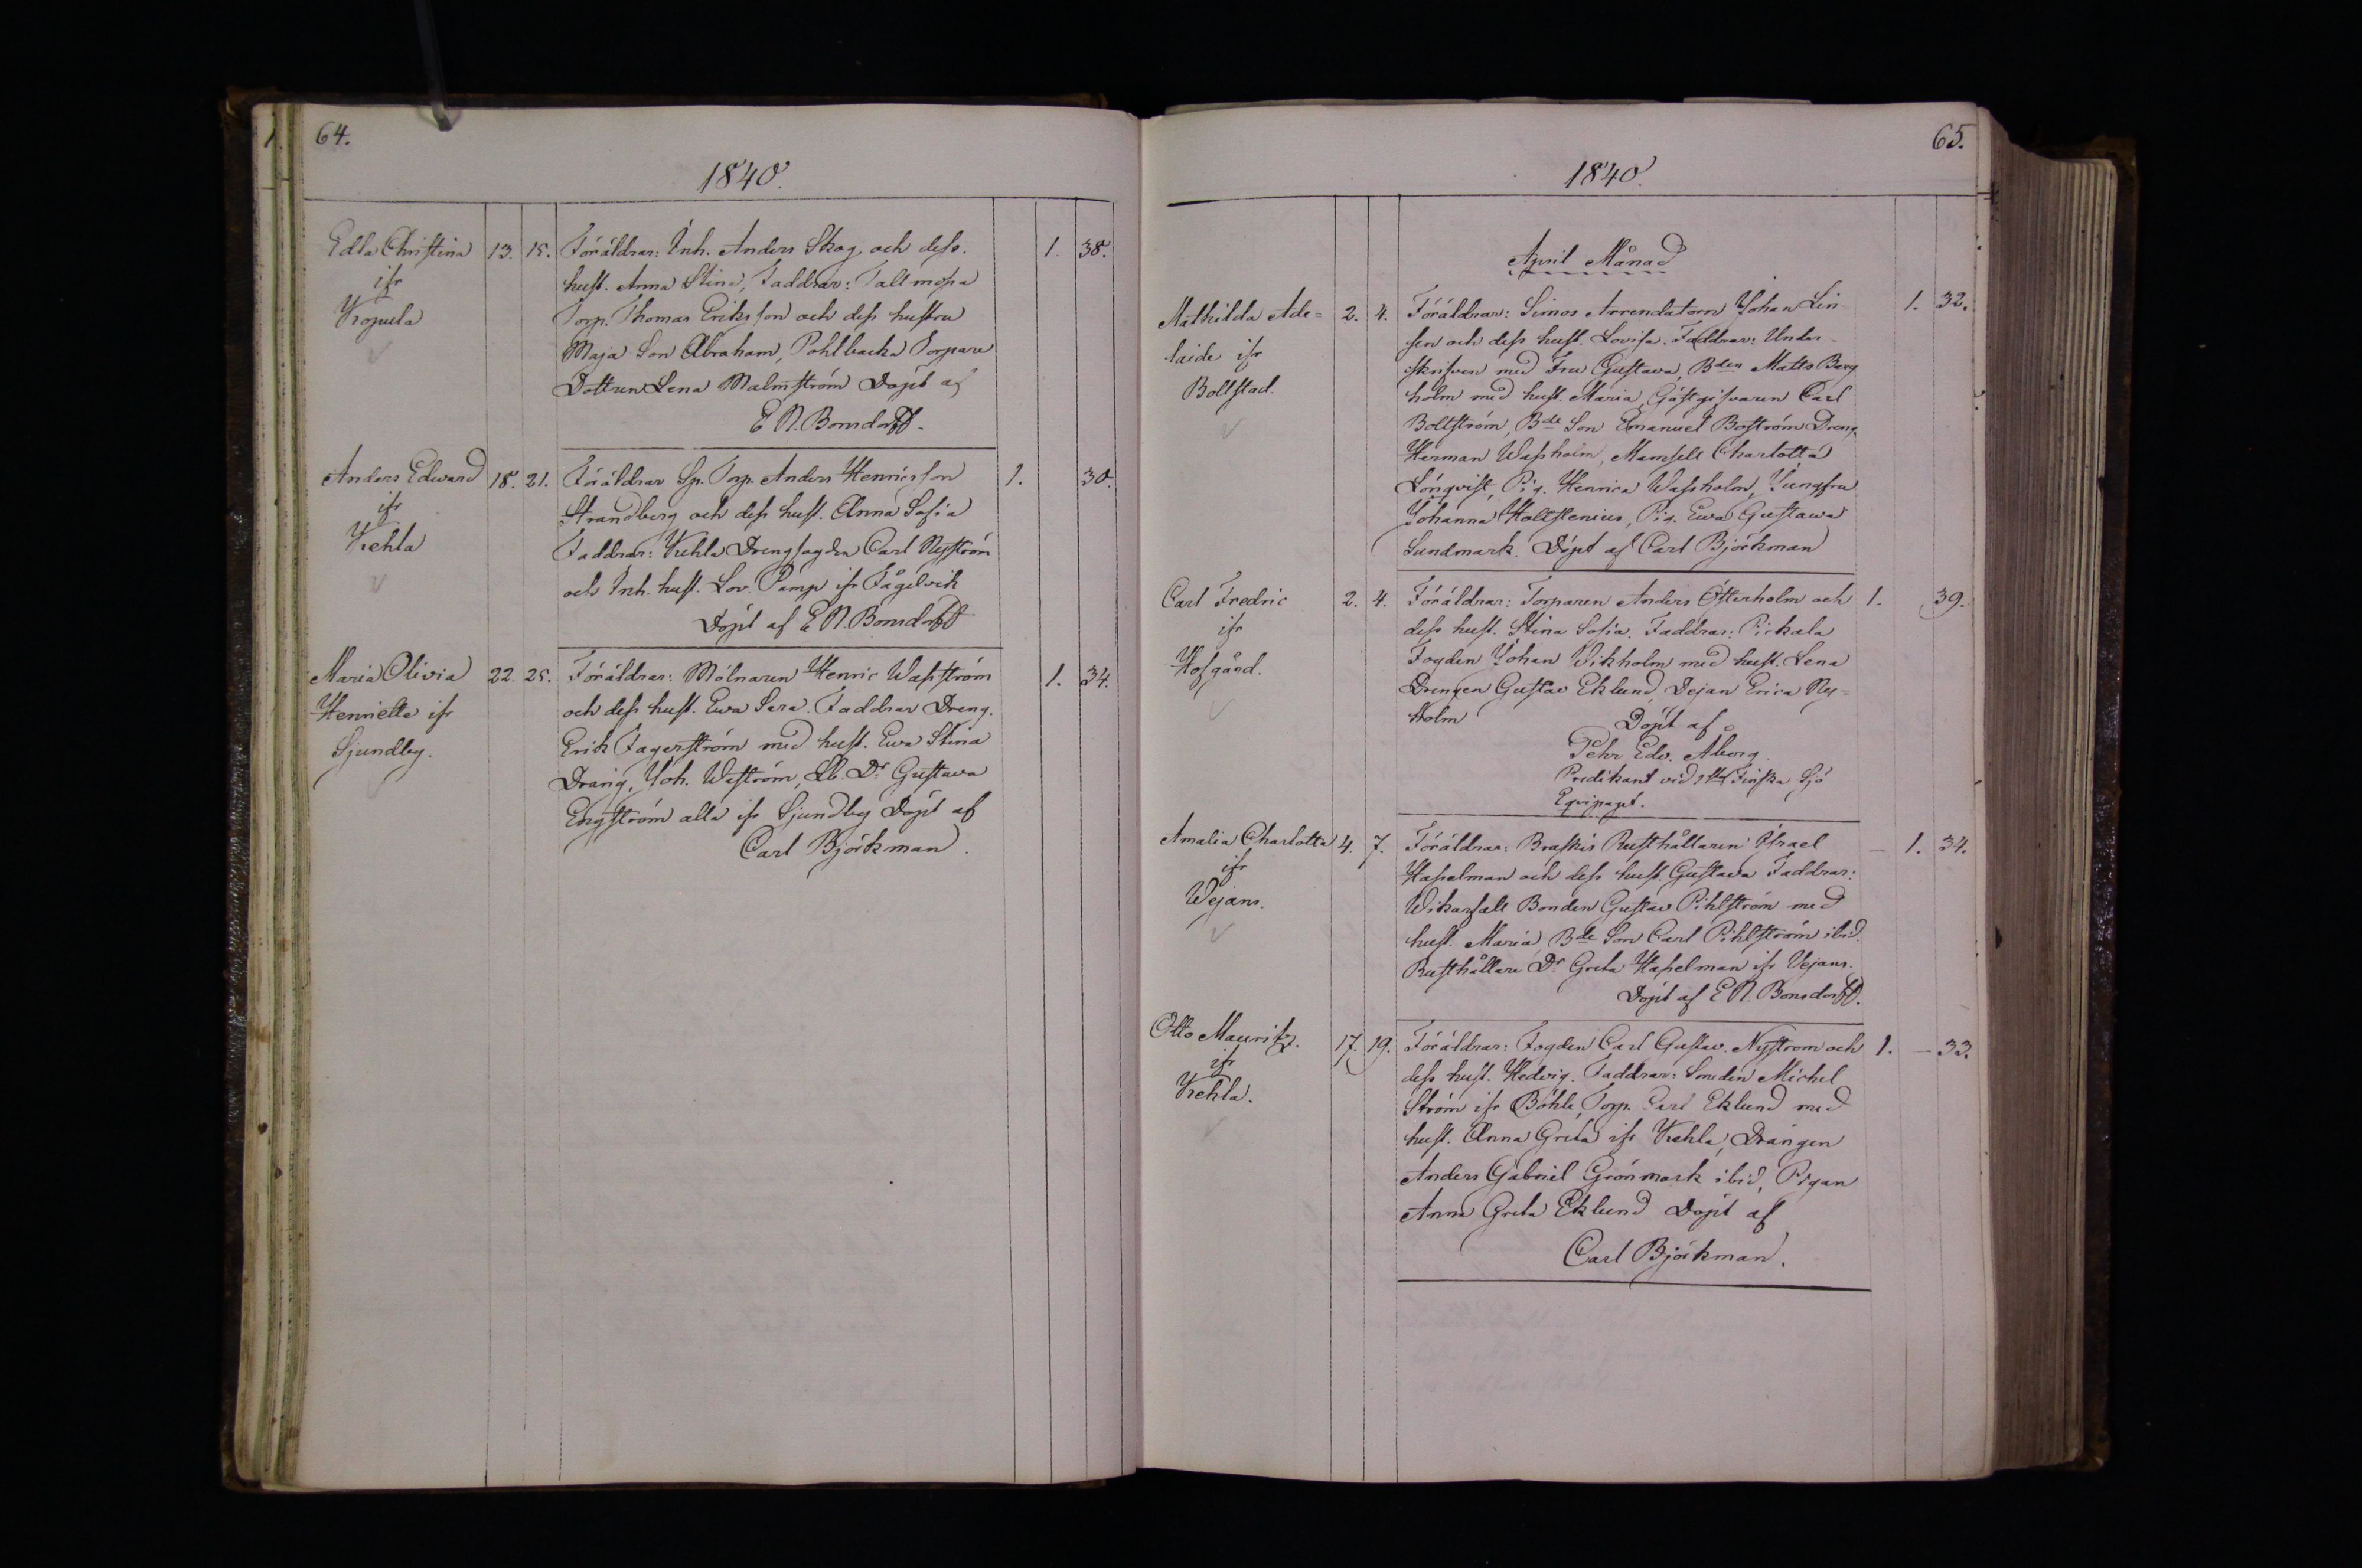 64.
1840.
Edla Christina 13. 15. Föräldrar: Inh. Anders Skog och dess. 1. 38.
ifr hust. Anna Stina, Faddrar: Tallmossa
Kopula Torp. Thomas Eriksson och dess hustru
Maja Son Abraham, Pohlbacka Torpare
Dottren Lena Malmström Döpt af
E N. Bonsdorff.
Anders Edward 18. 21. Föräldrar Sp. Torp. Anders Henricsson 1. 30.
ifr Strandberg och dess hust. Anna Sofia
Kehla Faddrar: Kehla Drengfogden Carl Nyström
och Inh. hust. Lov. Pamp ifr Fågelvik
Döpt af E N. Bonsdorff
Maria Olivia 22. 25. Föräldrar: Mölnaren Henric Wasström 1. 34.
Henrietta ifr och dess hust. Ewa Sara. Faddrar Dreng.
Sjundby. Erik Fagerström med hust. Ewa Stina
Dräng, Joh. Waström, Dr Gustava
Engström alla ifr Sjundby Döpt af
Carl Björkman.
65.
1840.
April Månad
Mathilda Ade= 2. 4. Föräldrar: Simos Arrendatorn Johan Lin- 1. 32.
laide ifr sen och dess hust. Lovisa. Faddrar: Under-
Bollstad. skrifven med Fru Gustava, Bden Matts Berg
holm med hust. Maria, Gästgifvaren Carl
Bollström, Bde Son Emanuel Boström Dreng
Herman Wassholm, Mamsell Charlotta
Lönqvist, Pig. Henrica Wassholm, Jungfru
Johanna Holtstenius, Pig. Ewa Gustawa
Sundmark. Döpt af Carl Björkman
Carl Fredric 2. 4. Föräldrar: Torparen Anders Österholm och 1. 39.
ifr dess hust. Stina Sofia. Faddrar: Pickala
Hofgård. Fogden Johan Wikholm med hust. Lena
Drengen Gustav Eklund, Dejan Erica Ny=
holm Döpt af
Pehr Edv. Åberg
Predikant vid 1sta Finska Sjö
Equipaget.
Amalia Charlotta 4. 7. Föräldrar: Braskis Rusthållaren Israel — 1. 34.
ifr Hasselman och dess hust. Gustava Faddrar:
Wejans. Wikarsall Bonden Gustav Pihlström med
hust. Maria, Bde Son Carl Pihlström ibid.
Rusthållare Dr Greta Hasselman ifr Vejans.
Döpt af E N. Bonsdorff.
Otto Mauritz. 17. 19. Föräldrar: Fogden Carl Gustav. Nyström och 1. — 33.
ifr dess hust. Hedvig. Faddrar: Smeden Michel
Kehla. Ström ifr Böhle, Torp. Carl Eklund med
hust. Anna Greta ifr Kehla, Drängen
Anders Gabriel Grönmark ibid, Pigan
Anna Greta Eklund Döpt af
Carl Björkman.